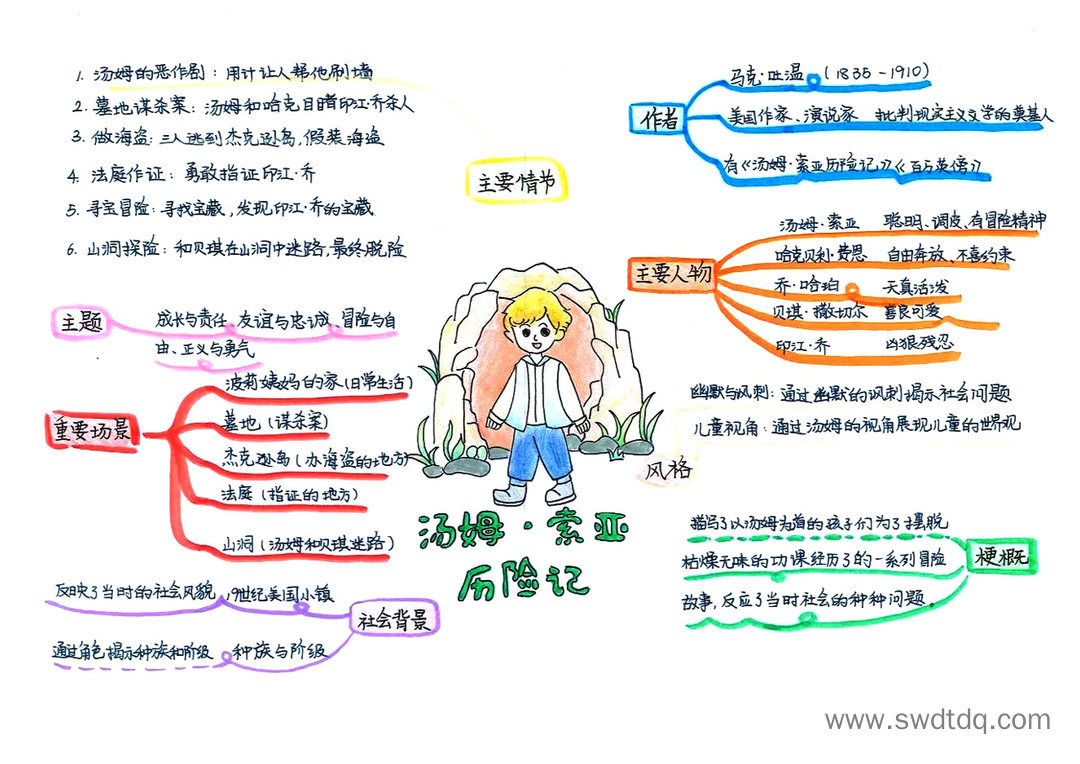 1. 汤姆的恶作剧：用计让人帮他刷墙
2. 墓地谋杀案：汤姆和哈克目睹印江·乔杀人
3. 做海盗：三人逃到杰克逊岛，假装海盗
4. 法庭作证：勇敢指证印江·乔
5. 寻宝冒险：寻找宝藏，发现印江·乔的宝藏
6. 山洞探险：和贝琪在山洞中迷路，最终脱险
主要情节
作者
马克·吐温（1835-1910）
美国作家、演说家 批判现实主义文学的奠基人
有《汤姆·索亚历险记》《百万英傍》
主要人物
汤姆·索亚 聪明、调皮、有冒险精神
哈克贝利·费恩 自由奔放、不喜约束
乔·哈珀 天真活泼
贝琪·撒切尔 善良可爱
印江·乔 凶狠残忍
主题
成长与责任、友谊与忠诚、冒险与自
由、正义与勇气
重要场景
波莉姨妈的家（日常生活）
墓地（谋杀案）
杰克逊岛（办海盗的地方）
法庭（指证的地方）
山洞（汤姆和贝琪迷路）
幽默与讽刺：通过幽默的讽刺揭示社会问题
儿童视角：通过汤姆的视角展现儿童的世界观
风格
汤姆·索亚
历险记
描写了以汤姆为首的孩子们为了摆脱
枯燥无味的功课经历了的一系列冒险
故事，反应了当时社会的种种问题。
梗概
反映了当时的社会风貌 19世纪美国小镇
社会背景
通过角色揭示种族和阶级 种族与阶级
www.swdtdq.com